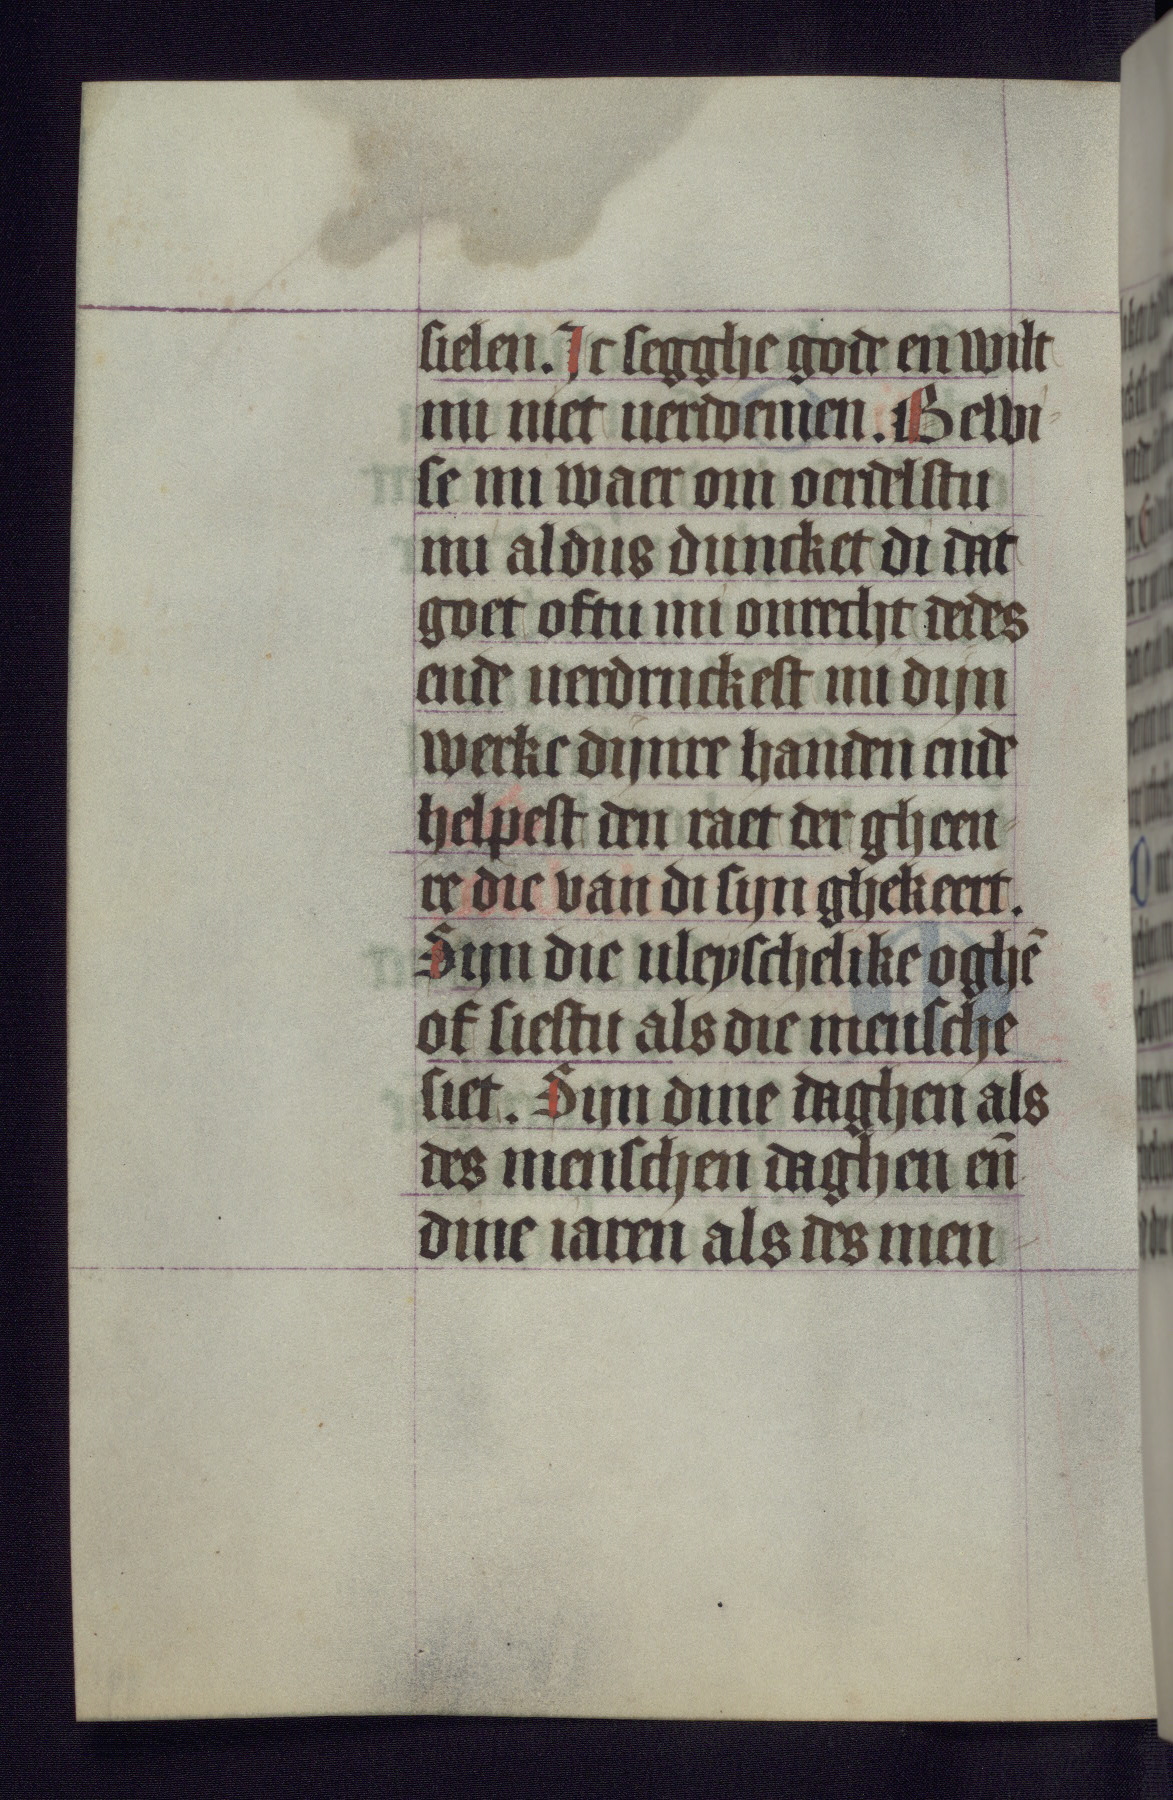 sielen. Ic segghe gode en wilt
mi niet uerdoemen. Bewi-
se mi waer om oerdelstu
mi aldus duncket di dat
goet oftu mi onrecht dedes
ende uerdruckest mi dijn
werke dijnre handen ende
helpest den raet der gheen-
re die van di sijn ghekeert.
Sijn die uleyschelike oghē
of siestu als die mensche
siet. Sijn dine daghen als
des menschen daghen eñ
dine iaren als des men-